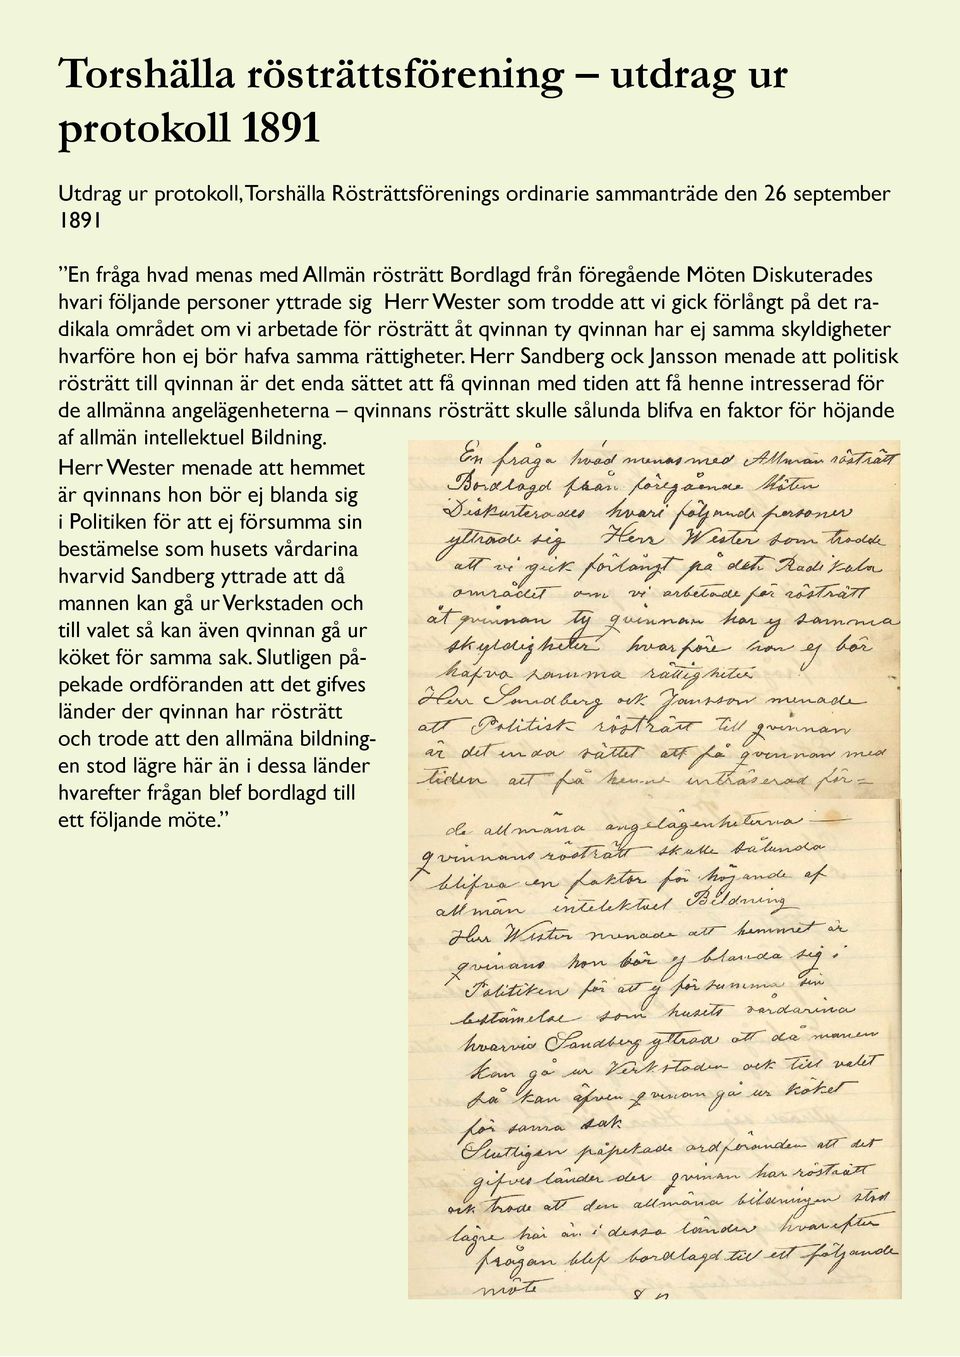 Torshälla rösträttsförening – utdrag ur
protokoll 1891
Utdrag ur protokoll, Torshälla Rösträttsförenings ordinarie sammanträde den 26 september
1891
”En fråga hvad menas med Allmän rösträtt Bordlagd från föregående Möten Diskuterades
hvari följande personer yttrade sig Herr Wester som trodde att vi gick förlångt på det ra-
dikala området om vi arbetade för rösträtt åt qvinnan ty qvinnan har ej samma skyldigheter
hvarföre hon ej bör hafva samma rättigheter. Herr Sandberg ock Jansson menade att politisk
rösträtt till qvinnan är det enda sättet att få qvinnan med tiden att få henne intresserad för
de allmänna angelägenheterna – qvinnans rösträtt skulle sålunda blifva en faktor för höjande
af allmän intellektuel Bildning.
Herr Wester menade att hemmet
är qvinnans hon bör ej blanda sig
i Politiken för att ej försumma sin
bestämelse som husets vårdarina
hvarvid Sandberg yttrade att då
mannen kan gå ur Verkstaden och
till valet så kan även qvinnan gå ur
köket för samma sak. Slutligen på-
pekade ordföranden att det gifves
länder der qvinnan har rösträtt
och trode att den allmäna bildning-
en stod lägre här än i dessa länder
hvarefter frågan blef bordlagd till
ett följande möte.”
En fråga hvad menas med Allmän rösträtt
Bordlagd från föregående Möten
Diskuterades hvari följande personer
yttrade sig Herr Wester som trodde
att vi gick förlångt på det Radikala
området om vi arbetade för rösträtt
åt qvinnan ty qvinnan har ej samma
skyldigheter hvarföre hon ej bör
hafva samma rättigheter
Herr Sandberg ock Jansson menade
att Politisk rösträtt till qvinnan
är det enda sättet att få qvinnan med
tiden att få henne inträserad för=
de allmäna angelägenheterna —
qvinnans rösträtt skulle sålunda
blifva en faktor för höjande af
allmän intelektuel Bildning
Herr Wester menade att hemmet är
qvinans hon bör ej blanda sig i
Politiken för att ej försumma sin
bestämelse som husets vårdarina
hvarvid Sandberg yttrad att då manen
kan gå ur Verkstaden ock till valet
så kan äfven qvinan gå ur köket
för sama sak
Slutligen påpekade ordföranden att det
gifves länder der qvinan har rösträtt
ock trode att den allmäna bildningen stod
lägre här än i dessa länder hvarefter
frågan blef bordlagd till ett följande
möte